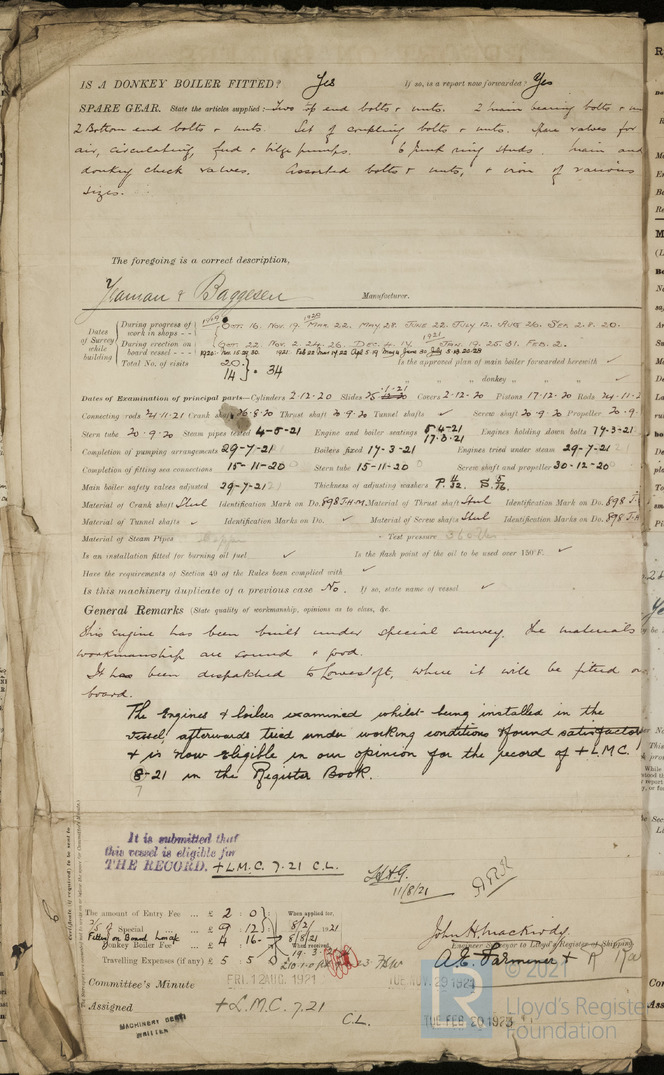 IS A DONKEY BOILER FITTED? Yes If so, is a report now forwarded? Yes
SPARE GEAR. State the articles supplied:— Two top end bolts & nuts. 2 main bearing bolts &
2 Bottom end bolts & nuts. Set of coupling bolts & nuts. Spare valves for
air, circulating, feed & bilge pumps. 6 junk ring studs. Main and
donkey check valves. Assorted bolts & nuts, & iron of various
sizes.
The foregoing is a correct description,
Yeaman & Baggesen Manufacturer.
Dates of Survey while building
During progress of work in shops - - 1919 Oct. 16. Nov. 19. 1920 Mar. 22. May 28. June 22. July 12. Aug 26. Sep. 2. 8. 20.
During erection on board vessel - - - Oct. 22. Nov. 24. 26. Dec. 4. 14. 1921 Jan. 19. 25. 31. Feb. 2.
Total No. of visits 20 14 } 34 Is the approved plan of main boiler forwarded herewith ✓
" " " donkey " " " ✓
Dates of Examination of principal parts—Cylinders 2-12-20 Slides Covers 2-12-20 Pistons 17-12-20 Rods
Connecting rods Crank shaft 26-8-20 Thrust shaft 20-9-20 Tunnel shafts ✓ Screw shaft 20-9-20 Propeller 20-9-
Stern tube 20-9-20 Steam pipes tested 4-5-21 Engine and boiler seatings 5-4-21 17-3-21 Engines holding down bolts 17-3-21
Completion of pumping arrangements 29-7-21 Boilers fixed 17-3-21 Engines tried under steam 29-7-21
Completion of fitting sea connections 15-11-20 Stern tube 15-11-20 Screw shaft and propeller 30-12-20
Main boiler safety valves adjusted 29-7-21 Thickness of adjusting washers P. 11/32 S. 5/16
Material of Crank shaft Steel Identification Mark on Do. 898 J.H.M. Material of Thrust shaft Steel Identification Mark on Do. 898 J.
Material of Tunnel shafts ✓ Identification Marks on Do. ✓ Material of Screw shaft Steel Identification Marks on Do. 898 J.H
Material of Steam Pipes Copper Test pressure
Is an installation fitted for burning oil fuel ✓ Is the flash point of the oil to be used over 150°F. ✓
Have the requirements of Section 49 of the Rules been complied with ✓
Is this machinery duplicate of a previous case No. If so, state name of vessel ✓
General Remarks (State quality of workmanship, opinions as to class, &c.
This engine has been built under special survey. The materials
workmanship are sound & good.
It has been dispatched to Lowestoft, where it will be fitted on
board.
The Engines & boilers examined whilst being installed in the
vessel, afterwards tried under working conditions & found satisfactory
& is now eligible in our opinion for the record of + L.M.C.
8-21 in the Register Book.
7
It is submitted that
this vessel is eligible for
THE RECORD. + L.M.C. 7.21 C.L.
11/8/21
The amount of Entry Fee ... £ 2 : 0 : When applied for,
Special ... £ 9 : 12 : 8/2/ 1921
Donkey Boiler Fee £ 4 16 - 8/8/21
Travelling Expenses (if any) £ 5 : 5 When received, 19.3.21
John H Mackirdy.
Engineer Surveyor to Lloyd's Register of Shipping
A.E. Farminer &
Committee's Minute FRI. 12 AUG. 1921 TUE. NOV. 29 1921
Assigned + L.M.C. 7.21 TUE. FEB. 20 1923
C.L.
MACHINERY CERT
WRITTEN
© 2021
Lloyd's Register
Foundation